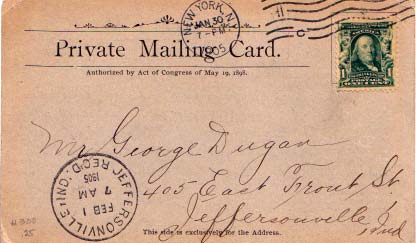 NEW YORK, N.Y.
JAN 30
7-PM
1905
C
Private Mailing Card.
Authorized by Act of Congress of May 19, 1898.
1
Mr George Dugan
405 East Front St
Jeffersonville
Ind
JEFFERSONVILLE, IND.
FEB 1
7 AM
1905
REC'D.
This side is exclusively for the Address.
.25